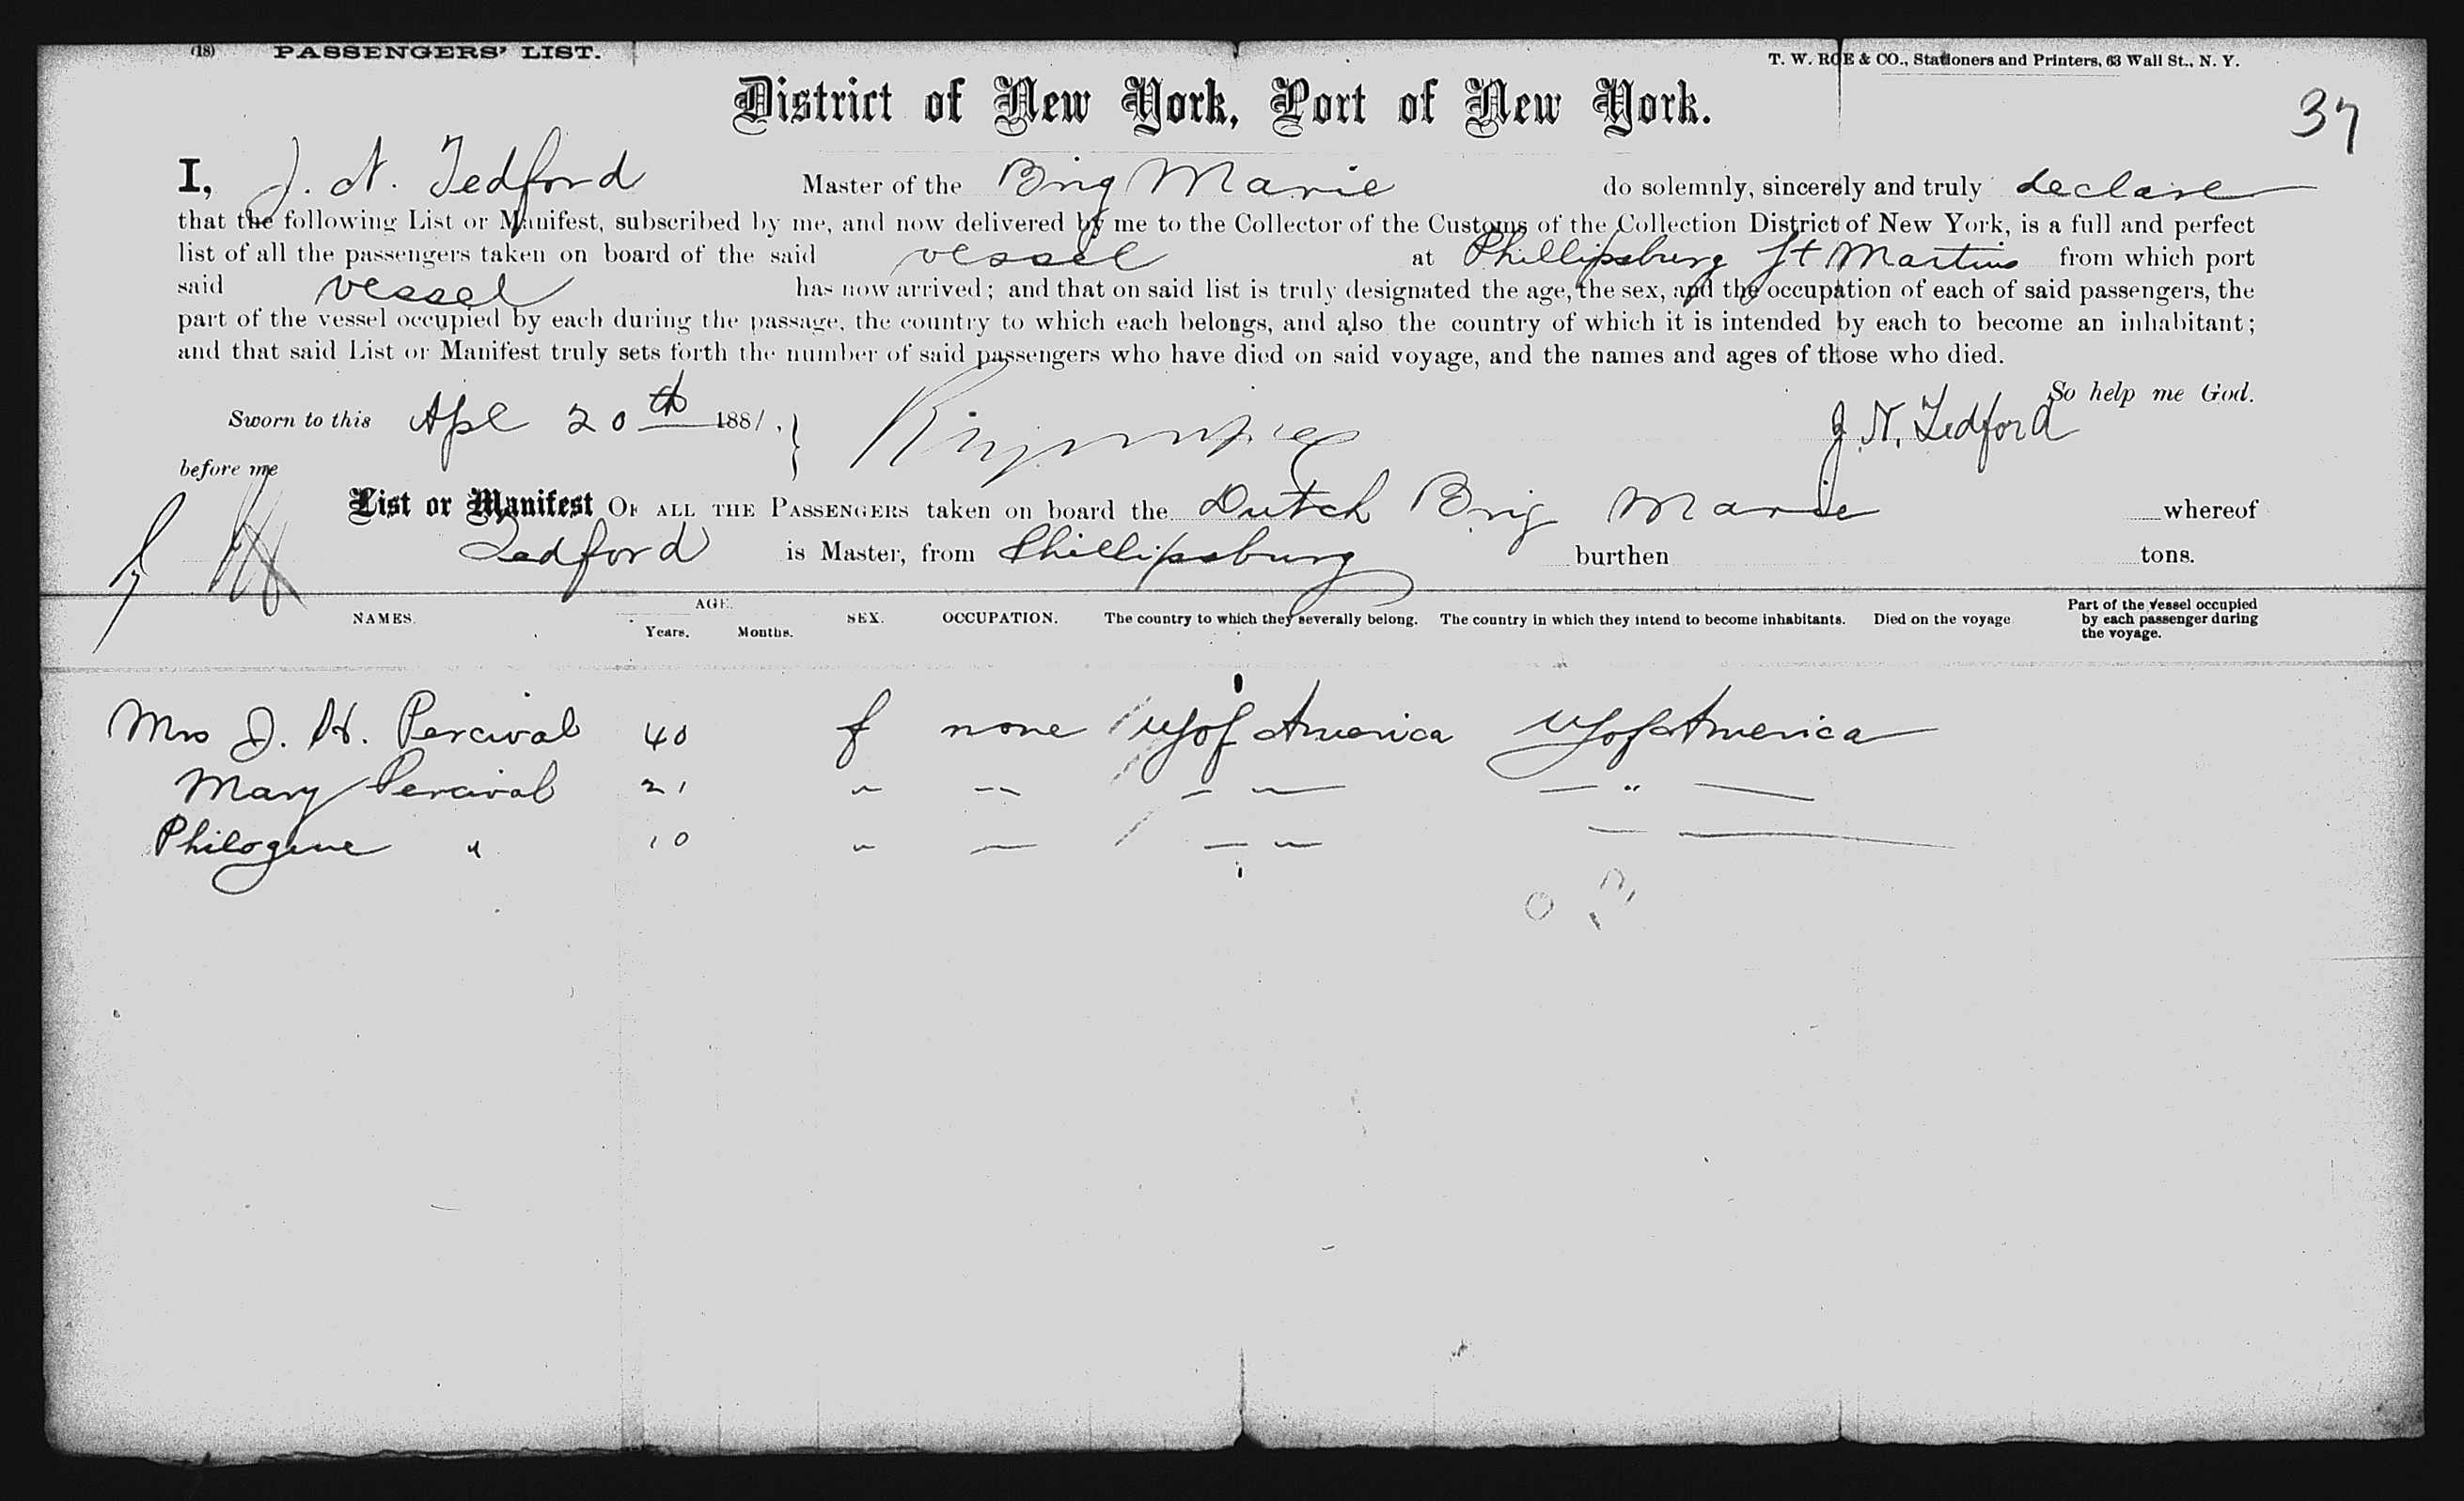 (18) PASSENGERS' LIST. T. W. ROE & CO., Stationers and Printers, 63 Wall St., N. Y.
District of New York, Port of New York.
37
I, J. N. Tedford Master of the Brig Marie do solemnly, sincerely and truly declare
that the following List or Manifest, subscribed by me, and now delivered by me to the Collector of the Customs of the Collection District of New York, is a full and perfect
list of all the passengers taken on board of the said vessel at Phillipsburg St Martins from which port
said vessel has now arrived; and that on said list is truly designated the age, the sex, and the occupation of each of said passengers, the
part of the vessel occupied by each during the passage, the country to which each belongs, and also the country of which it is intended by each to become an inhabitant;
and that said List or Manifest truly sets forth the number of said passengers who have died on said voyage, and the names and ages of those who died.
So help me God.
Sworn to this Apl 20th 1881, J. N. Tedford
before me
List or Manifest OF ALL THE PASSENGERS taken on board the Dutch Brig Marie whereof
Tedford is Master, from Phillipsburg burthen tons.
NAMES. AGE. Years. Months. SEX. OCCUPATION. The country to which they severally belong. The country in which they intend to become inhabitants. Died on the voyage Part of the Vessel occupied by each passenger during the voyage.
Mrs J. H. Percival 40 f none US of America US of America
Mary Percival 21 " — — " — — " —
Philogene " 10 " — — " — —